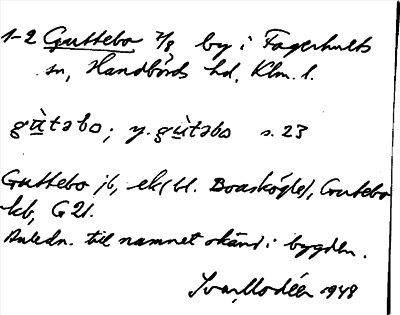 1-2 Guttebo 7/8 by i Fagerhults
sn, Handbörds hd, Klm. l.
gùtəbo; y. gùtəbo s. 23
Guttebo jb, ek (bl. Boaskögle), Gutebo
kb, G 21.
Anledn. till namnet okänd i bygden.
Ivar Modéer 1948